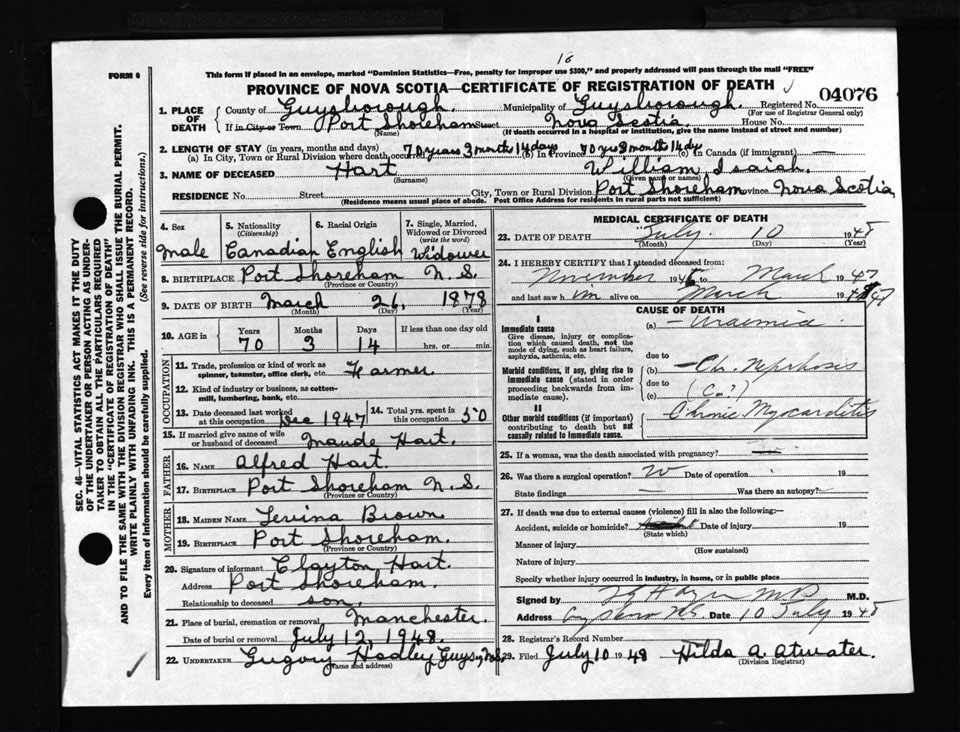 16
FORM 6
This form if placed in an envelope, marked "Dominion Statistics—Free, penalty for improper use $300," and properly addressed will pass through the mail "FREE"
PROVINCE OF NOVA SCOTIA—CERTIFICATE OF REGISTRATION OF DEATH
04076
1. PLACE OF DEATH
County of Guysborough. Municipality of Guysborough. Registered No.
(For use of Registrar General only)
If in City or Town Port Shoreham Street Nova Scotia. House No.
(Name) (If death occurred in a hospital or institution, give the name instead of street and number)
2. LENGTH OF STAY (in years, months and days)
(a) In City, Town or Rural Division where death occurred 70 years 3 months 14 days (b) In Province 70 yrs 3 months 14 dys (c) In Canada (if immigrant) —
3. NAME OF DECEASED Hart William Isaiah
(Surname) (Given name or names)
RESIDENCE No. Street City, Town or Rural Division Port Shoreham Province Nova Scotia
(Residence means usual place of abode. Post Office Address for residents in rural parts not sufficient)
4. Sex Male
5. Nationality (Citizenship) Canadian
6. Racial Origin English
7. Single, Married, Widowed or Divorced (write the word) Widower
8. BIRTHPLACE Port Shoreham N.S.
(Province or Country)
9. DATE OF BIRTH March 26, 1878
(Month) (Day) (Year)
10. AGE in Years 70 Months 3 Days 14 If less than one day old hrs. or min.
OCCUPATION
11. Trade, profession or kind of work as spinner, teamster, office clerk, etc. Farmer
12. Kind of industry or business, as cotton-mill, lumbering, bank, etc.
13. Date deceased last worked at this occupation Dec 1947
14. Total yrs. spent in this occupation 50
15. If married give name of wife or husband of deceased Maude Hart.
FATHER
16. NAME Alfred Hart.
17. BIRTHPLACE Port Shoreham N.S.
(Province or Country)
MOTHER
18. MAIDEN NAME Levina Brown
19. BIRTHPLACE Port Shoreham.
(Province or Country)
20. Signature of informant Clayton Hart.
Address Port Shoreham.
Relationship to deceased son.
21. Place of burial, cremation or removal Manchester.
Date of burial or removal July 12, 1948.
22. UNDERTAKER Gregory Hadley Guys, N.S.
(Name and address)
MEDICAL CERTIFICATE OF DEATH
23. DATE OF DEATH July. 10 1948
(Month) (Day) (Year)
24. I HEREBY CERTIFY that I attended deceased from:
November to March 1947
and last saw him alive on March 47
CAUSE OF DEATH
I
Immediate cause
Give disease, injury or complication which caused death, not the mode of dying, such as heart failure, asphyxia, asthenia, etc.
(a) — Uraemia
due to
Morbid conditions, if any, giving rise to immediate cause (stated in order proceeding backwards from immediate cause).
(b) — Ch. Nephrosis
due to
(c) (Ca?)
II
Other morbid conditions (if important) contributing to death but not causally related to immediate cause.
Chronic Myocarditis
25. If a woman, was the death associated with pregnancy? —
26. Was there a surgical operation? Date of operation 19
State findings — Was there an autopsy? —
27. If death was due to external causes (violence) fill in also the following:—
Accident, suicide or homicide? Date of injury 19
(State which)
Manner of injury
(How sustained)
Nature of injury
Specify whether injury occurred in industry, in home, or in public place
Signed by M.D. M.D.
Address Guysboro N.S. Date 10 July 1948
28. Registrar's Record Number
29. Filed July 10 1948 Hilda A. Atwater.
(Division Registrar)
SEC. 46—VITAL STATISTICS ACT MAKES IT THE DUTY
OF THE UNDERTAKER OR PERSON ACTING AS UNDER-
TAKER TO OBTAIN ALL THE PARTICULARS REQUIRED
IN THE "CERTIFICATE OF REGISTRATION OF DEATH"
AND TO FILE THE SAME WITH THE DIVISION REGISTRAR WHO SHALL ISSUE THE BURIAL PERMIT.
WRITE PLAINLY WITH UNFADING INK. THIS IS A PERMANENT RECORD.
Every item of information should be carefully supplied. (See reverse side for instructions.)